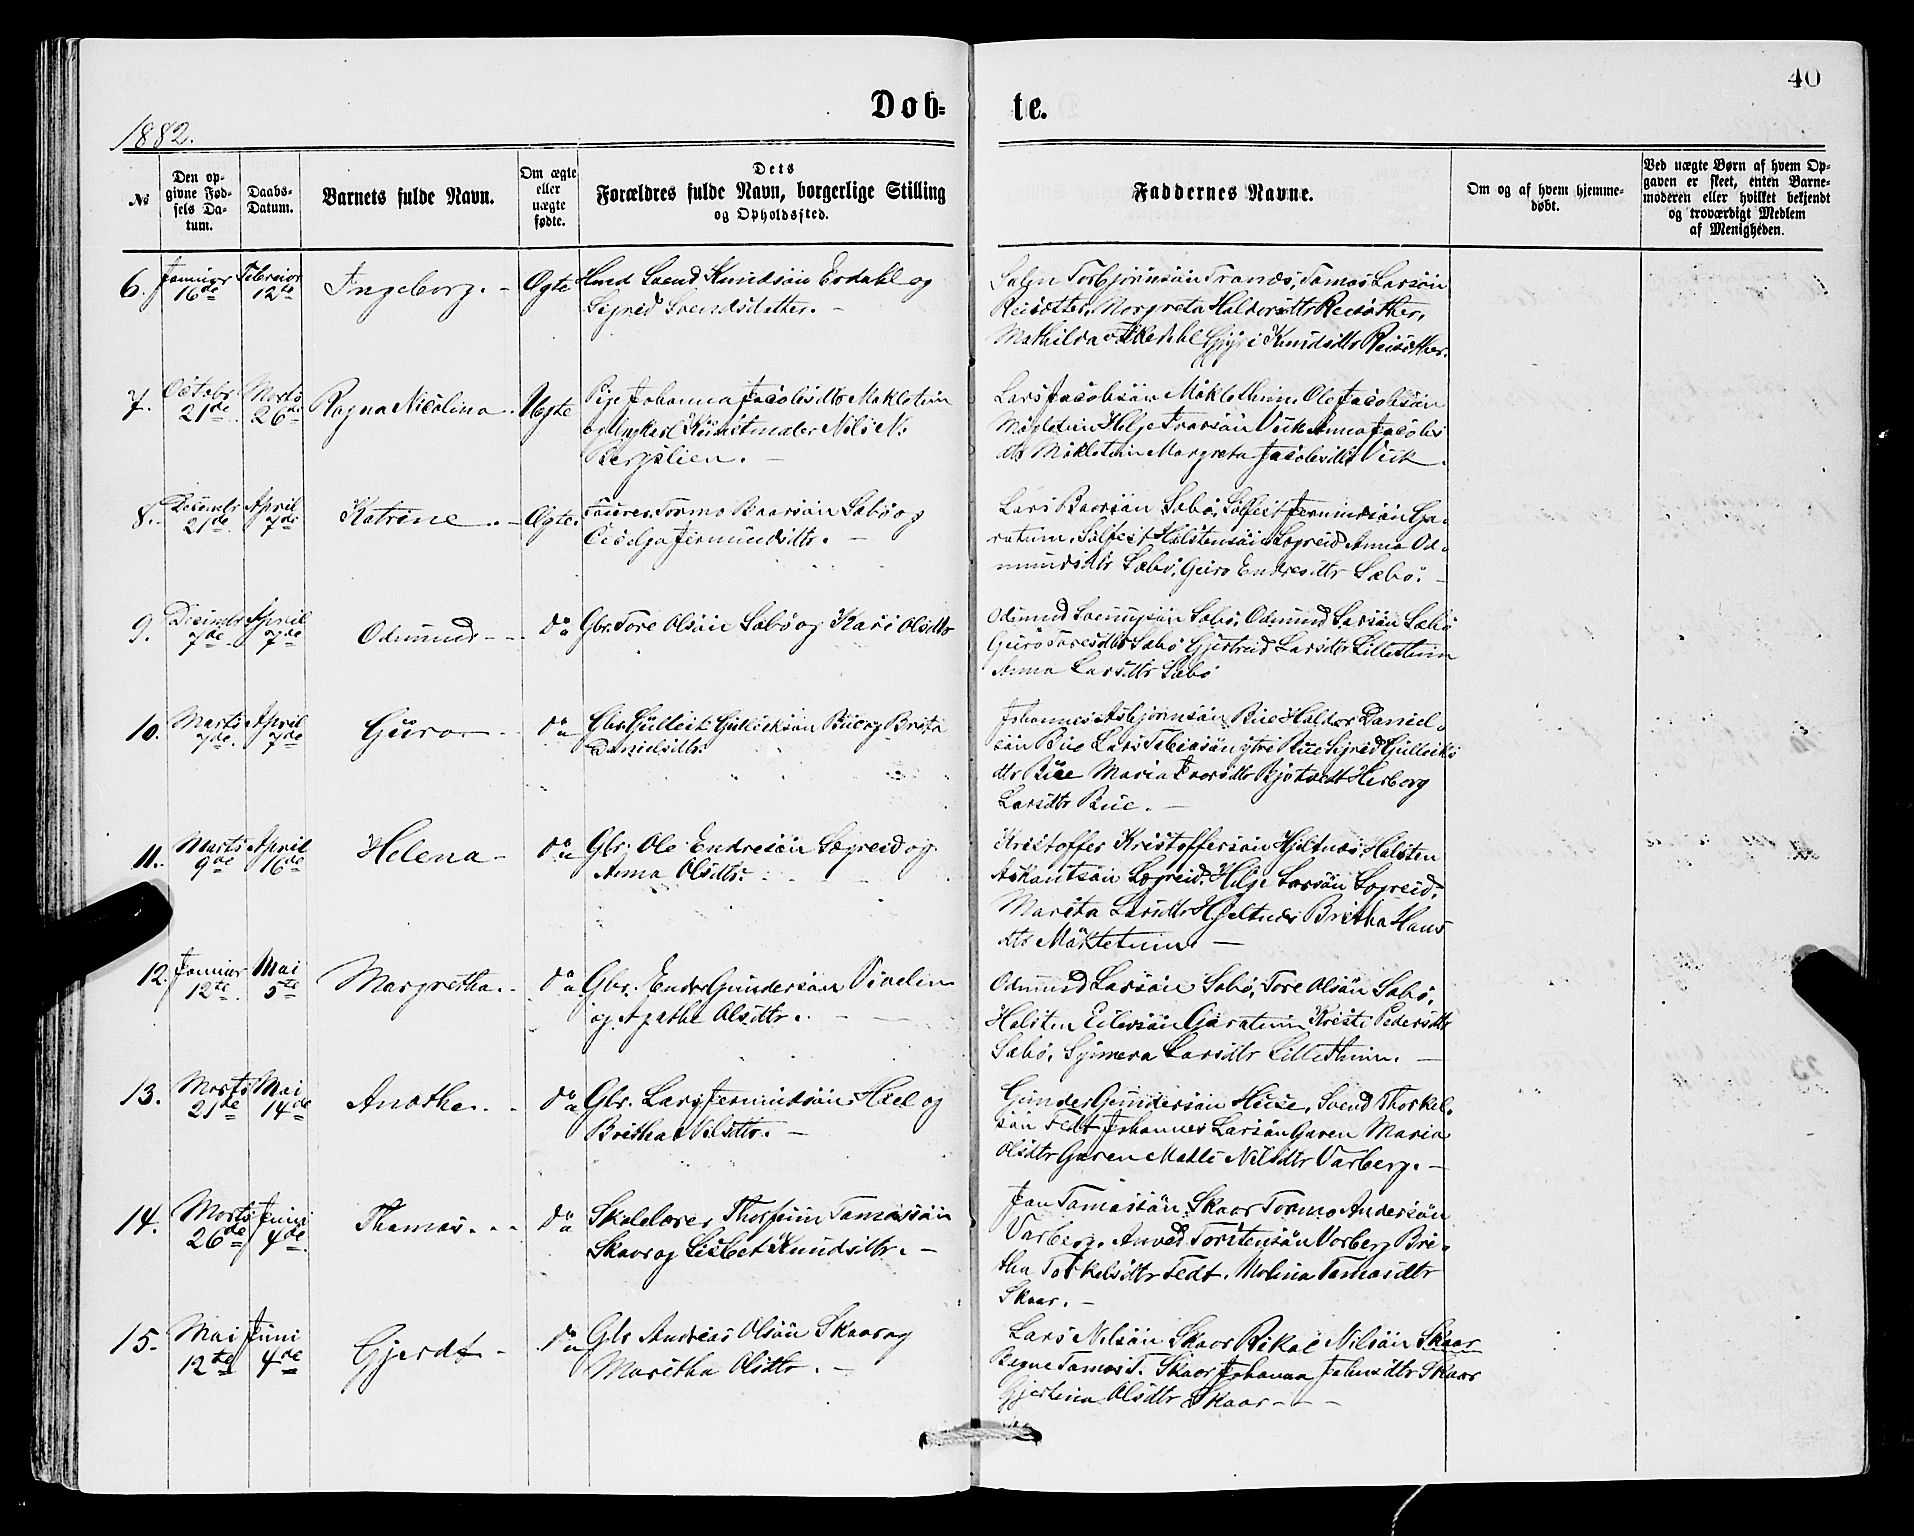 40
Døb= te.
1882.
No
Den op-
givne Fød-
sels Da-
tum.
Daabs-
Datum.
Barnets fulde Navn.
Om ægte
eller
uægte
fødte.
Dets
Forældres fulde Navn, borgerlige Stilling
og Opholdssted.
Faddernes Navne.
Om og af hvem hjemme-
døbt.
Ved uægte Børn af hvem Op-
gaven er skeet, enten Barne-
moderen eller hvilket bekjendt
og troværdigt Medlem
af Menigheden.
6. Januar 16de Februar 12te Ingeborg. Ægte
Svend Knudsön og
Sigrid Svendsdatter.
Torbjörnsön Tranæs, Tamas Larsön
Reisæther, Margreta Haldorsdtr Reisæther,
Mathilda Knudsdtr Reisæther.
7. Octobr 21de Marts 26de Ragna Nicolina Uægte
Pige Johanna Jacobsdtr Mæklethun
og Ungkarl Kunstmaler Nils N.
Bergslien.
Lars Jacobsön Mæklethun Ole Jacobsön
Helje Ivarsön Vik Anna Jacobs
dtr Mæklethun Margreta Jacobsdtr Vik
8. Decembr 21de April 7de Katrine Ægte.
Tormo Baarsön Sæbö og
Jermundsdtr.
Lars Baarsön Sæbö, Jermundsön Ga-
ratun, Halstensön Legreid Anna Od-
mundsdtr Sæbö, Guro Endresdtr Sæbö.
9. Decembr 7de April 7de Odmund do
Gbr. Tore Olsön Sæbö og Kari Olsdtr
Odmund Sæbö, Odmund Larsön Sæbö
Guro Toresdtr Sæbö Gjertrud Larsdtr Lillethun
Anna Larsdtr Sæbö
10. Marts 7de April 7de Guro do
Gbr. Gulleik Gulleiksön Bue og Brita
Danielsdtr
Johannes Asbjörnsön Bue Haldor Daniel-
sön Bue Lars Tobiasön ytre Bue Sigrid Gulleiks
dtr Bue Maria Ivarsdtr Herborg
Larsdtr Bue.
11. Marts 9de April 16de Helena do
Gbr. Ole Endresön Lægreid og
Anna Olsdtr.
Kristoffer Kristoffersön Hjeltnæs, Halsten
Askautsön Lægreid, Helje Larsön Lægreid,
Marita Larsdtr Hjeltnæs Britha Hans
dtr Mæklethun.
12. Januar 12te Mai 5te Margretha. do
Gbr. Endre Gundersön
og Agatha Olsdtr.
Odmund Larsön Sæbö, Tore Olsön Sæbö,
Halsten Eilevsön Garathun Kristi Pedersdtr
Sæbö, Synneva Larsdtr Lillethun.
13. Marts 21de Mai 14de Anathe. do
Gbr. Lars Jermundsön Hæl og
Britha Olsdtr.
Gunder Gundersön Huse, Svend Thorkel-
sön Tedt Johannes Larsön Garen Maria
Olsdtr Garen Malli Nilsdtr Varberg.
14. Marts 26de Juni 4de Thomas. do
Skolelærer Thorfinn Tamassön
Skaar og Lisbet Knudsdtr.
Jon Tamassön Skaar Tormo Andersön
Varberg. Anved Torstensön Varberg Bri-
tha Torkelsdtr Tedt. Molina Tamasdtr
Skaar.
15. Mai 12te Juni 4de Gjerdt do
Gbr Andreas Olsön Skaar og
Maritha Olsdtr.
Lars Nilsön Skaar Mikal Nilsön Skaar
Tamas T. Skaar Johanna Johnsdtr Skaar
Gjertina Olsdtr Skaar